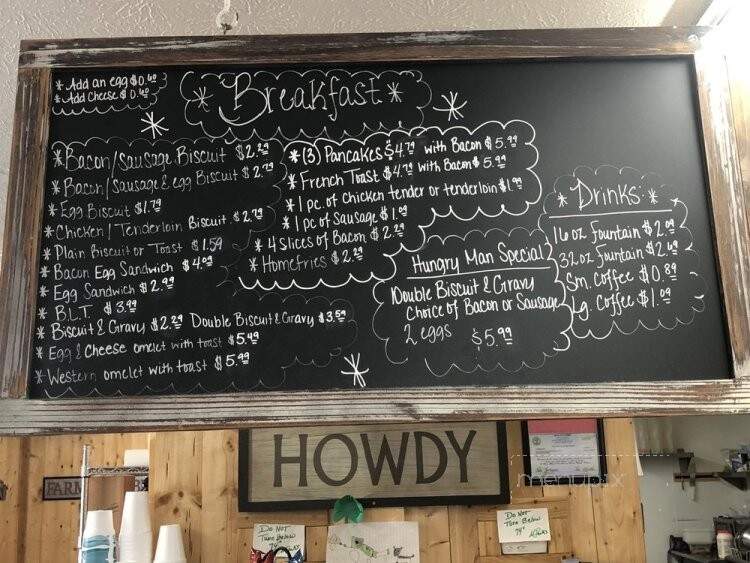 * Add an egg $0.60
* Add Cheese $0.60
* Breakfast *
* Bacon/Sausage Biscuit $2.29
* Bacon/Sausage & egg Biscuit $2.79
* Egg Biscuit $1.79
* Chicken/Tenderloin Biscuit $2.79
* Plain Biscuit or Toast $1.59
* Bacon Egg Sandwich $4.09
* Egg Sandwich $2.99
* B.L.T. $3.99
* Biscuit & Gravy $2.29 Double Biscuit & Gravy $3.59
* Egg & Cheese omelet with toast $5.49
* Western omelet with toast $5.99
* (3) Pancakes $4.79 with Bacon $5.99
* French Toast $4.79 with Bacon $5.99
* 1 pc. of chicken tender or tenderloin $1.99
* 1 pc of Sausage $1.09
* 4 slices of Bacon $2.29
* Homefries $2.29
Hungry Man Special
Double Biscuit & Gravy
Choice of Bacon or Sausage
2 eggs $5.99
* Drinks: *
16 oz Fountain $2.09
32 oz Fountain $2.69
Sm. Coffee $0.89
Lg. Coffee $1.09
HOWDY
FARM
DO NOT
Turn Below
74°
DO NOT
Turn Below
74°
menupix